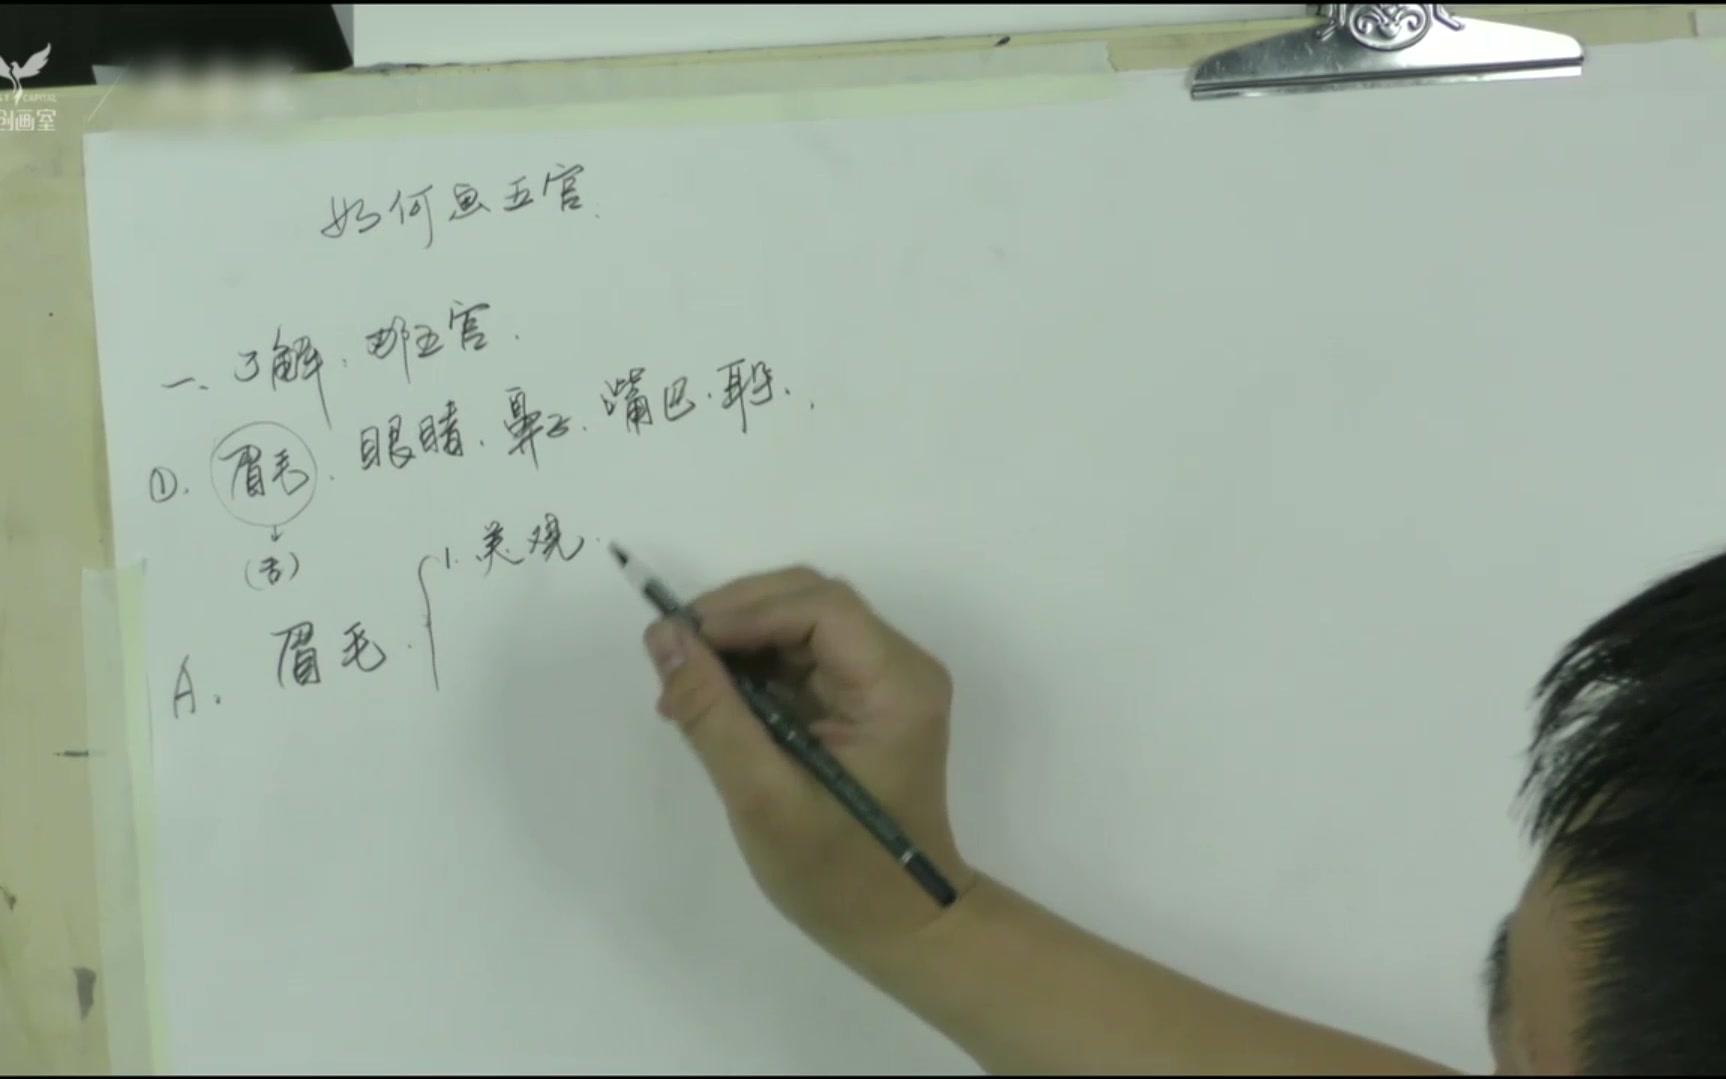 创画室
如何画五官.
一、了解. 哪五官.
①. 眉毛. 眼睛. 鼻子. 嘴巴. 耳朵.
(舌)
1. 美观.
A. 眉毛.